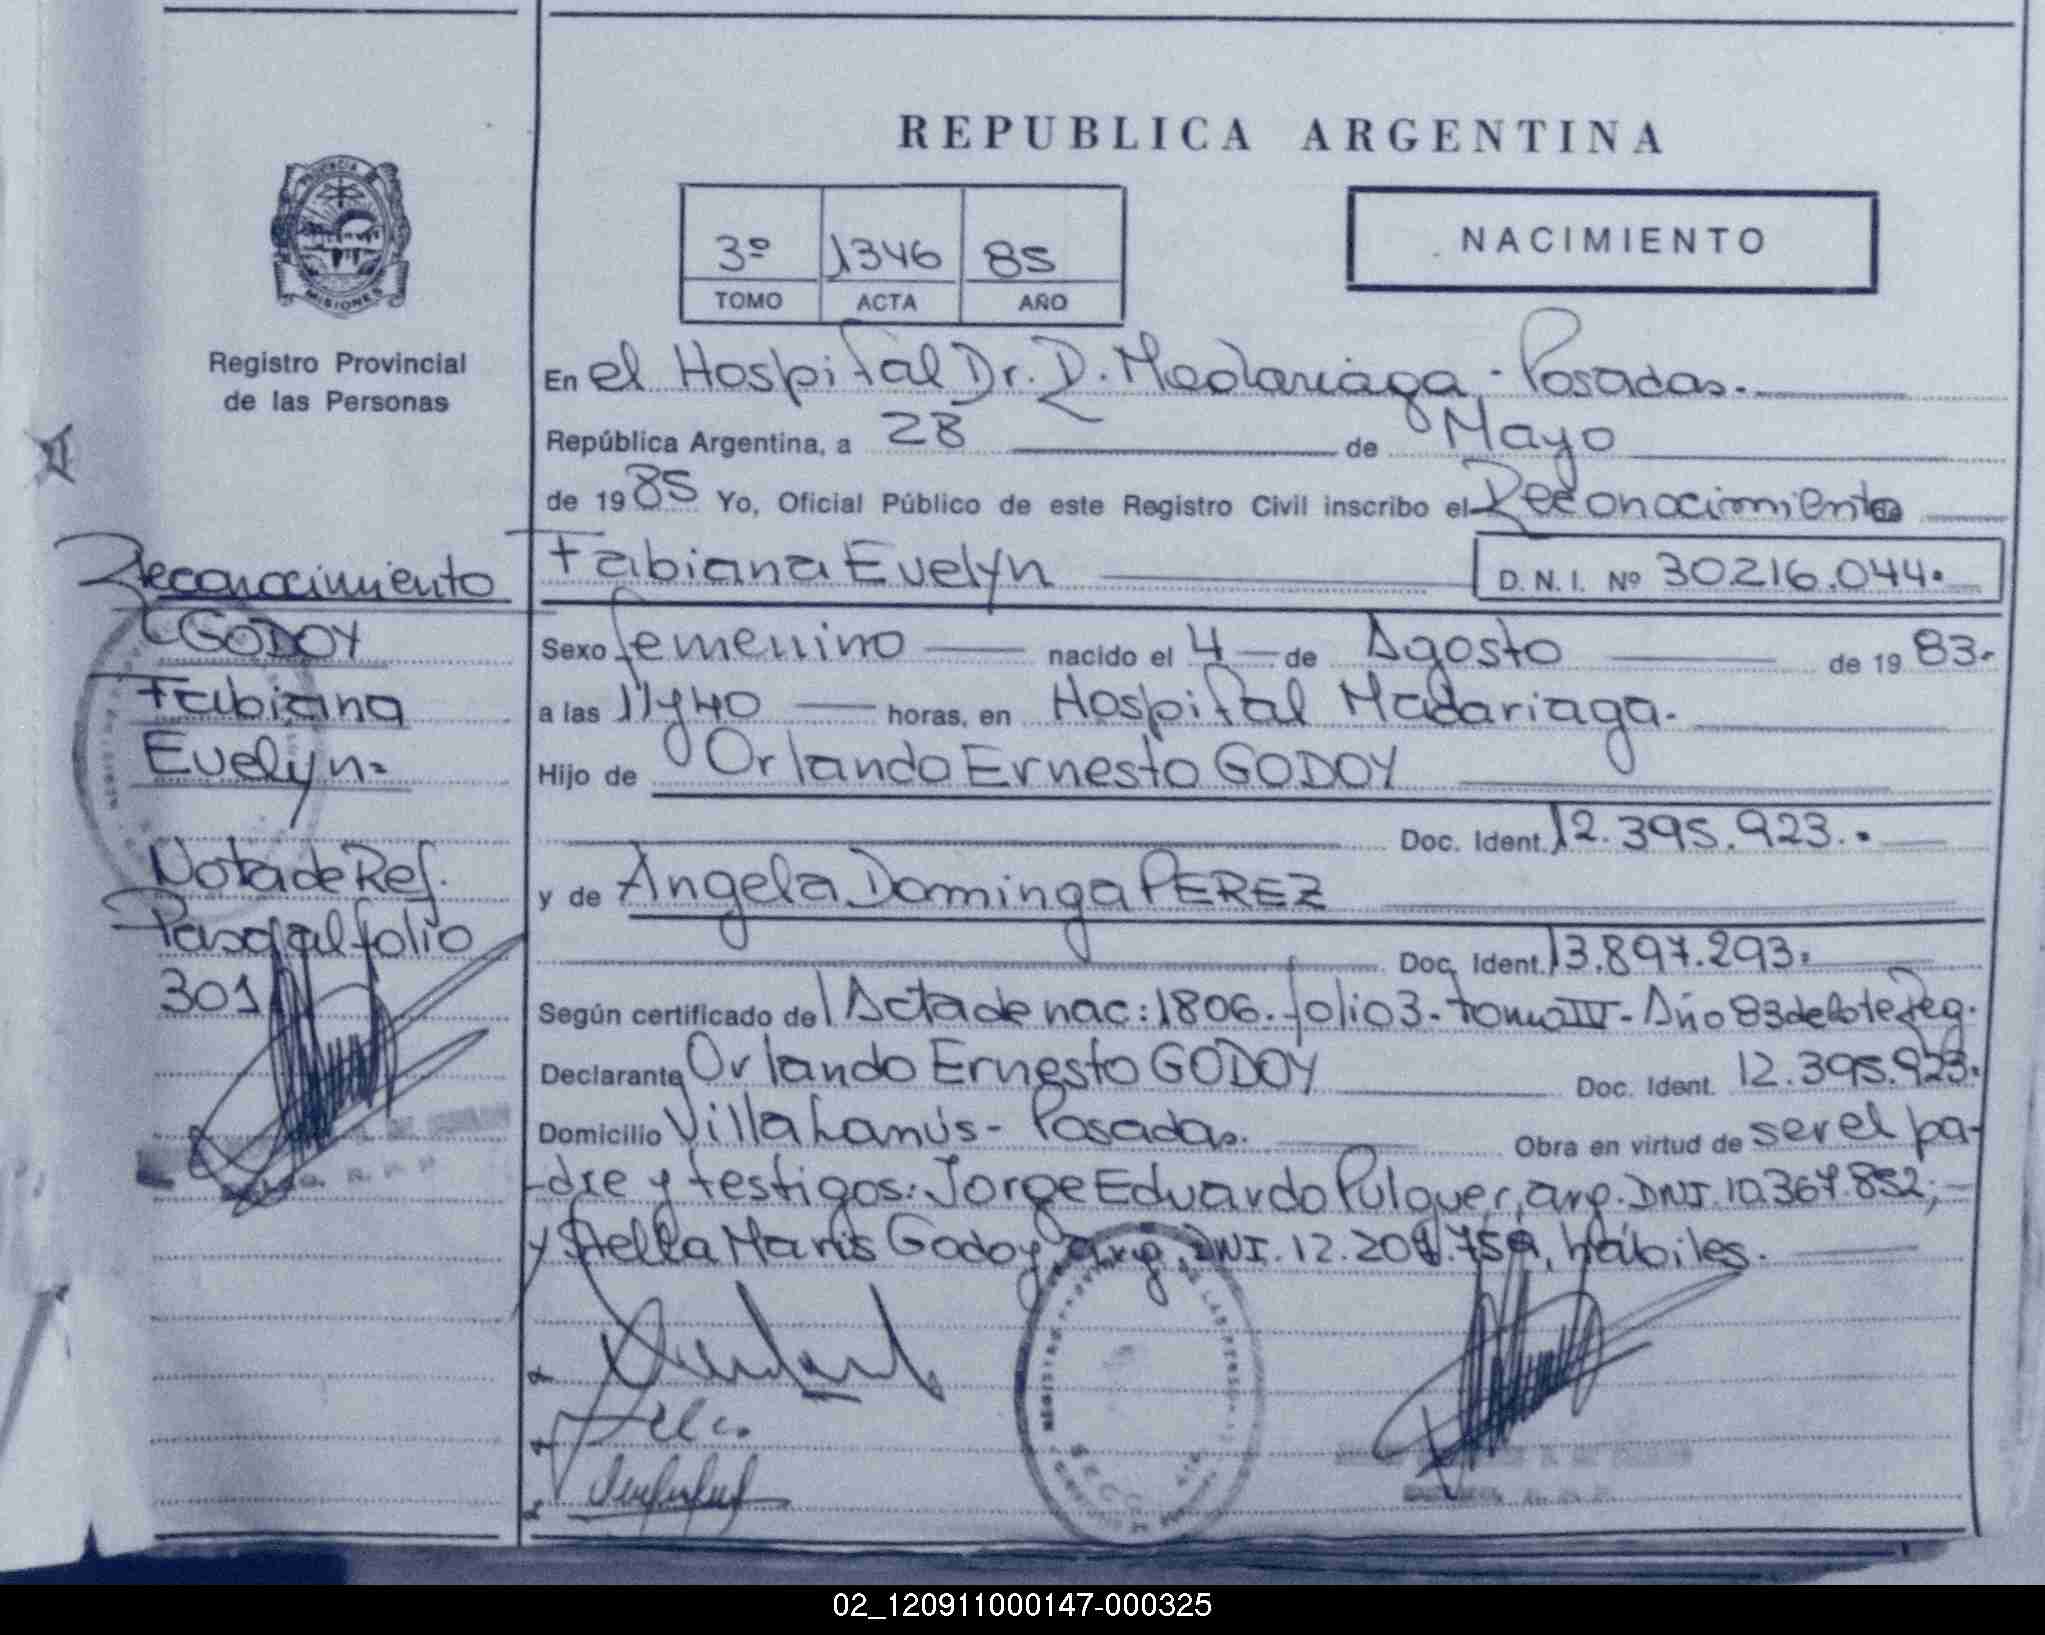 REPUBLICA ARGENTINA
PROVINCIA DE
MISIONES
Registro Provincial
de las Personas
3º 1346 85
TOMO ACTA AÑO
NACIMIENTO
En el Hospital Dr. R. Madariaga - Posadas.
República Argentina, a 28 de Mayo
de 1985 Yo, Oficial Público de este Registro Civil inscribo el Reconocimiento
Fabiana Evelyn D. N. I. Nº 30.216.044.
Sexo femenino nacido el 4 de Agosto de 1983.
a las 11y40 horas, en Hospital Madariaga.
Hijo de Orlando Ernesto GODOY
Doc. Ident. 12.395.923.
y de Angela Dominga PEREZ
Doc. Ident. 13.897.293.
Según certificado del Acta de nac: 1806. folio 3 - tomo IV - Año 83 de este Reg.
Declarante Orlando Ernesto GODOY Doc. Ident. 12.395.923.
Domicilio Villa Lanús - Posadas. Obra en virtud de ser el pa-
dre y testigos: Jorge Eduardo Pulquer, arg. DNI. 10.367.852;
y Stella Maris Godoy, arg. DNI. 12.20 .75 , hábiles.
Reconocimiento
GODOY
Fabiana
Evelyn=
Nota de Ref.
Pasa al folio
301
02_120911000147-000325